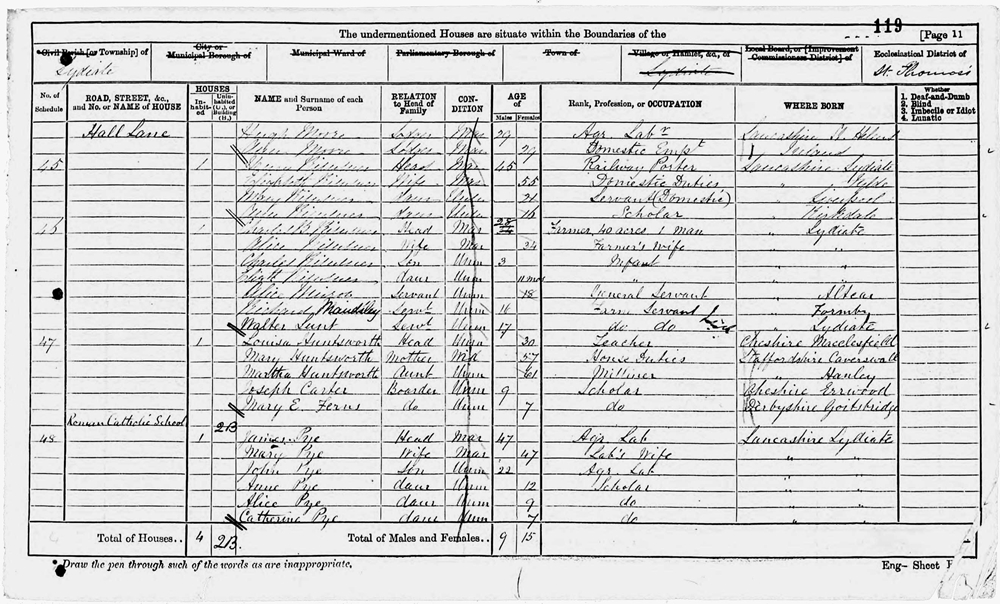 119
The undermentioned Houses are situate within the Boundaries of the [Page 11
Civil Parish [or Township] of City or Municipal Borough of Municipal Ward of Parliamentary Borough of Town of Village or Hamlet, &c., of Local Board, or [Improvement Commissioners District] of Ecclesiastical District of
Lydiate Lydiate St. Thomas's
No. of Schedule ROAD, STREET, &c., and No. or NAME of HOUSE HOUSES Inhabited Uninhabited (U.), or Building (B.) NAME and Surname of each Person RELATION to Head of Family CONDITION AGE of Males Females Rank, Profession, or OCCUPATION WHERE BORN Whether 1. Deaf-and-Dumb 2. Blind 3. Imbecile or Idiot 4. Lunatic
Hall Lane Hugh Mar 29 Agr. Labr Lancashire
Mar 29 Domestic Empt
45 1 Head Mar 45 Railway Porter Lancashire Lydiate
Wife Mar 55 Domestic Duties
Mary 21 Servant (Domestic) Liverpool
16 Scholar Kirkdale
1 Head Mar Farmer 40 acres 1 man " Lydiate
Alice Wife Mar 24 Farmer's Wife " "
Charles Son Unm 3 Infant " "
daur Unm 11 mos " "
Alice Servant Unm 18 General Servant " Altcar
Richard Mawdsley Servt Unm 16 Farm Servant " Formby
Walter Lunt Servt Unm 17 do do " Lydiate
47 1 Louisa Huntsworth Head Unm 30 Teacher Cheshire Macclesfield
Mary Huntsworth Mother Wid 57 House Duties Staffordshire Caverswall
Martha Huntsworth Aunt Unm 61 Milliner " Hanley
Joseph Carter Boarder Unm 9 Scholar Cheshire Errwood
Mary E. Ferns do Unm 7 do Derbyshire Goitsbridge
Roman Catholic School 2B
48 1 James Pye Head Mar 47 Agr. Lab Lancashire Lydiate
Mary Pye Wife Mar 47 Lab's Wife " "
John Pye Son Unm 22 Agr. Lab " "
Anne Pye daur Unm 12 Scholar " "
Alice Pye daur Unm 9 do " "
Catherine Pye daur Unm 7 do " "
Total of Houses.. 4 2B. Total of Males and Females.. 9 15
* Draw the pen through such of the words as are inappropriate. Eng- Sheet